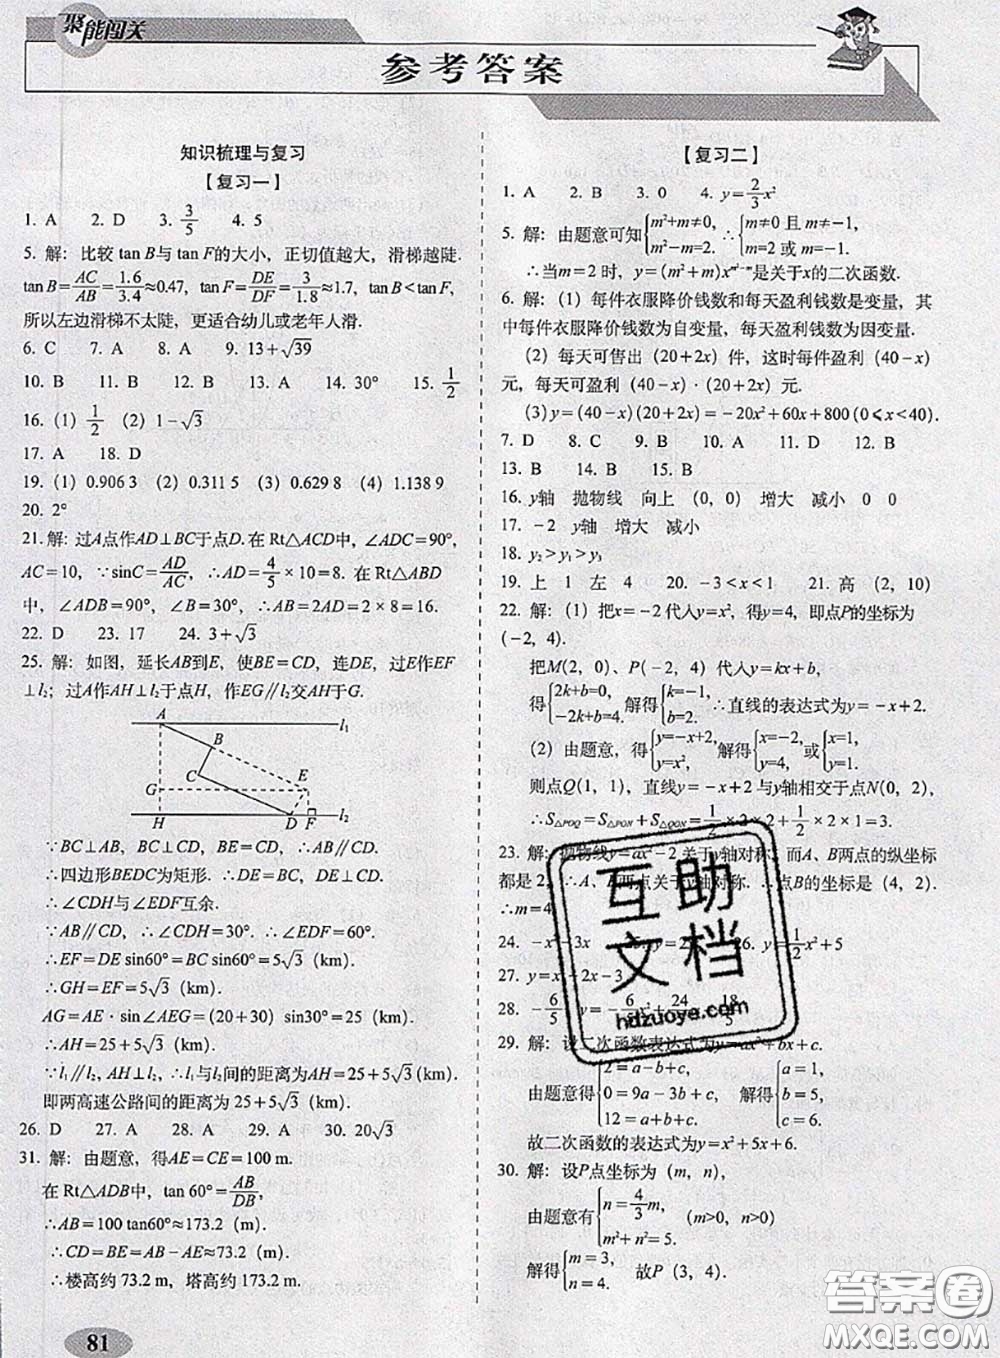 聚能闯关
参考答案
知识梳理与复习
【复习一】
1. A 2. D 3. 3/5 4. 5
5. 解: 比较 tan B与 tan F的大小, 正切值越大, 滑梯越陡.
tan B=AC/AB=1.6/3.4≈0.47, tan F=DE/DF=3/1.8≈1.7, tan B<tan F,
所以左边滑梯不太陡, 更适合幼儿或老年人滑.
6. C 7. A 8. A 9. 13+√39
10. B 11. B 12. B 13. A 14. 30° 15. 1/2
16. (1) 1/2 (2) 1-√3
17. A 18. D
19. (1) 0.906 3 (2) 0.311 5 (3) 0.629 8 (4) 1.138 9
20. 2°
21. 解: 过A点作AD⊥BC于点D. 在 Rt△ACD中, ∠ADC=90°,
AC=10, ∵sinC=AD/AC, ∴AD=4/5×10=8. 在 Rt△ABD
中, ∠ADB=90°, ∠B=30°, ∴AB=2AD=2×8=16.
22. D 23. 17 24. 3+√3
25. 解: 如图, 延长AB到E, 使BE=CD, 连DE, 过E作EF
⊥l₂; 过A作AH⊥l₂于点H, 作EG∥l₂交AH于G.
A l₁
B
C E
G
H D F l₂
∵BC⊥AB, BC⊥CD, BE=CD, ∴BE∥CD.
∴四边形BEDC为矩形. ∴DE=BC, DE⊥CD.
∴∠CDH与∠EDF互余.
∵AB∥CD, ∴∠CDH=30°. ∴∠EDF=60°.
∴EF=DE sin60°=BC sin60°=5√3 (km).
∴GH=EF=5√3 (km).
AG=AE·sin∠AEG=(20+30) sin30°=25 (km).
∴AH=25+5√3 (km).
∵l₁∥l₂, AH⊥l₂, ∴l₁与l₂间的距离为AH=25+5√3 (km).
即两高速公路间的距离为 25+5√3 (km).
26. D 27. A 28. A 29. A 30. 20√3
31. 解: 由题意, 得AE=CE=100 m.
在 Rt△ADB中, tan 60°=AB/DB,
∴AB=100 tan60°≈173.2 (m).
∴CD=BE=AB-AE≈73.2 (m).
∴楼高约 73.2 m, 塔高约 173.2 m.
81
【复习二】
1. A 2. B 3. 0 4. y=2/3x²
5. 解: 由题意可知{m²+m≠0, m²-m=2. ∴{m≠0 且 m≠-1, m=2 或 m=-1.
∴当m=2 时, y=(m²+m)x^(m²-m)是关于x的二次函数.
6. 解: (1) 每件衣服降价钱数和每天盈利钱数是变量, 其
中每件衣服降价钱数为自变量, 每天盈利钱数为因变量.
(2) 每天可售出 (20+2x) 件, 这时每件盈利 (40-x)
元, 每天可盈利 (40-x)·(20+2x) 元.
(3) y=(40-x)(20+2x)=-20x²+60x+800 (0≤x<40).
7. D 8. C 9. B 10. A 11. D 12. A
13. B 14. B 15. B
16. y轴 抛物线 向上 (0, 0) 增大 减小 0 0
17. -2 y轴 增大 减小
18. y₂>y₁>y₃
19. 上 1 左 4 20. -3<x<1 21. 高 (2, 10)
22. 解: (1) 把x=-2 代入y=x², 得y=4, 即点P的坐标为
(-2, 4).
把M(2, 0)、P(-2, 4) 代入y=kx+b,
得{2k+b=0, -2k+b=4. 解得{k=-1, b=2. ∴直线的表达式为y=-x+2.
(2) 由题意, 得{y=-x+2, y=4, 解得{x=-2, y=4, 或{x=1, y=1.
则点Q(1, 1), 直线y=-x+2 与y轴相交于点N(0, 2),
∴S△POQ=S△PON+S△QON=1/2×2×2+1/2×2×1=3.
23. 解: 抛物线y=ax²-2 关于y轴对称, 而A、B两点的纵坐标
都是 2, ∴A、B两点关于y轴对称. ∴点B的坐标是 (4, 2).
∴m=4
24. -x²-3x 25. y=2 26. y=1/2x²+5
27. y=x²-2x-3
28. -6/5 y=-6/5x²+24/5 18/5
29. 解: 设二次函数表达式为y=ax²+bx+c.
由题意得{2=a-b+c, 0=9a-3b+c, 12=a+b+c, 解得{a=1, b=5, c=6.
故二次函数的表达式为y=x²+5x+6.
30. 解: 设P点坐标为 (m, n),
由题意有{n=4/3m, m²+n²=5. (m>0, n>0)
解得{m=3, n=4. 故P (3, 4).
互助
文档
hdzuoye.com
答案圈
MXQE.COM